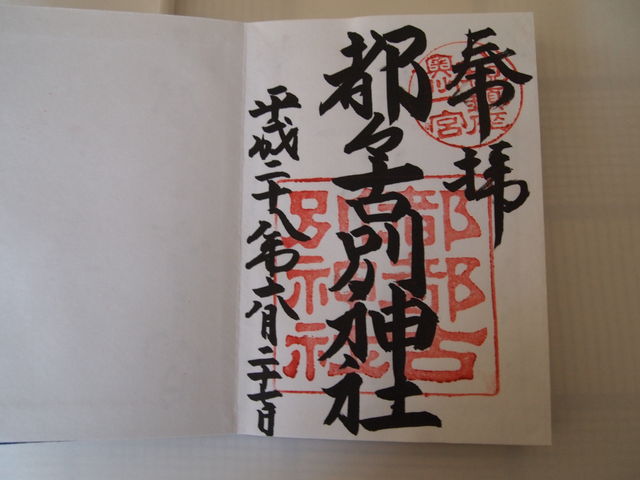 奉拝
都々古別神社
平成二十八年六月二十七日
奥州一宮
都都古別神社